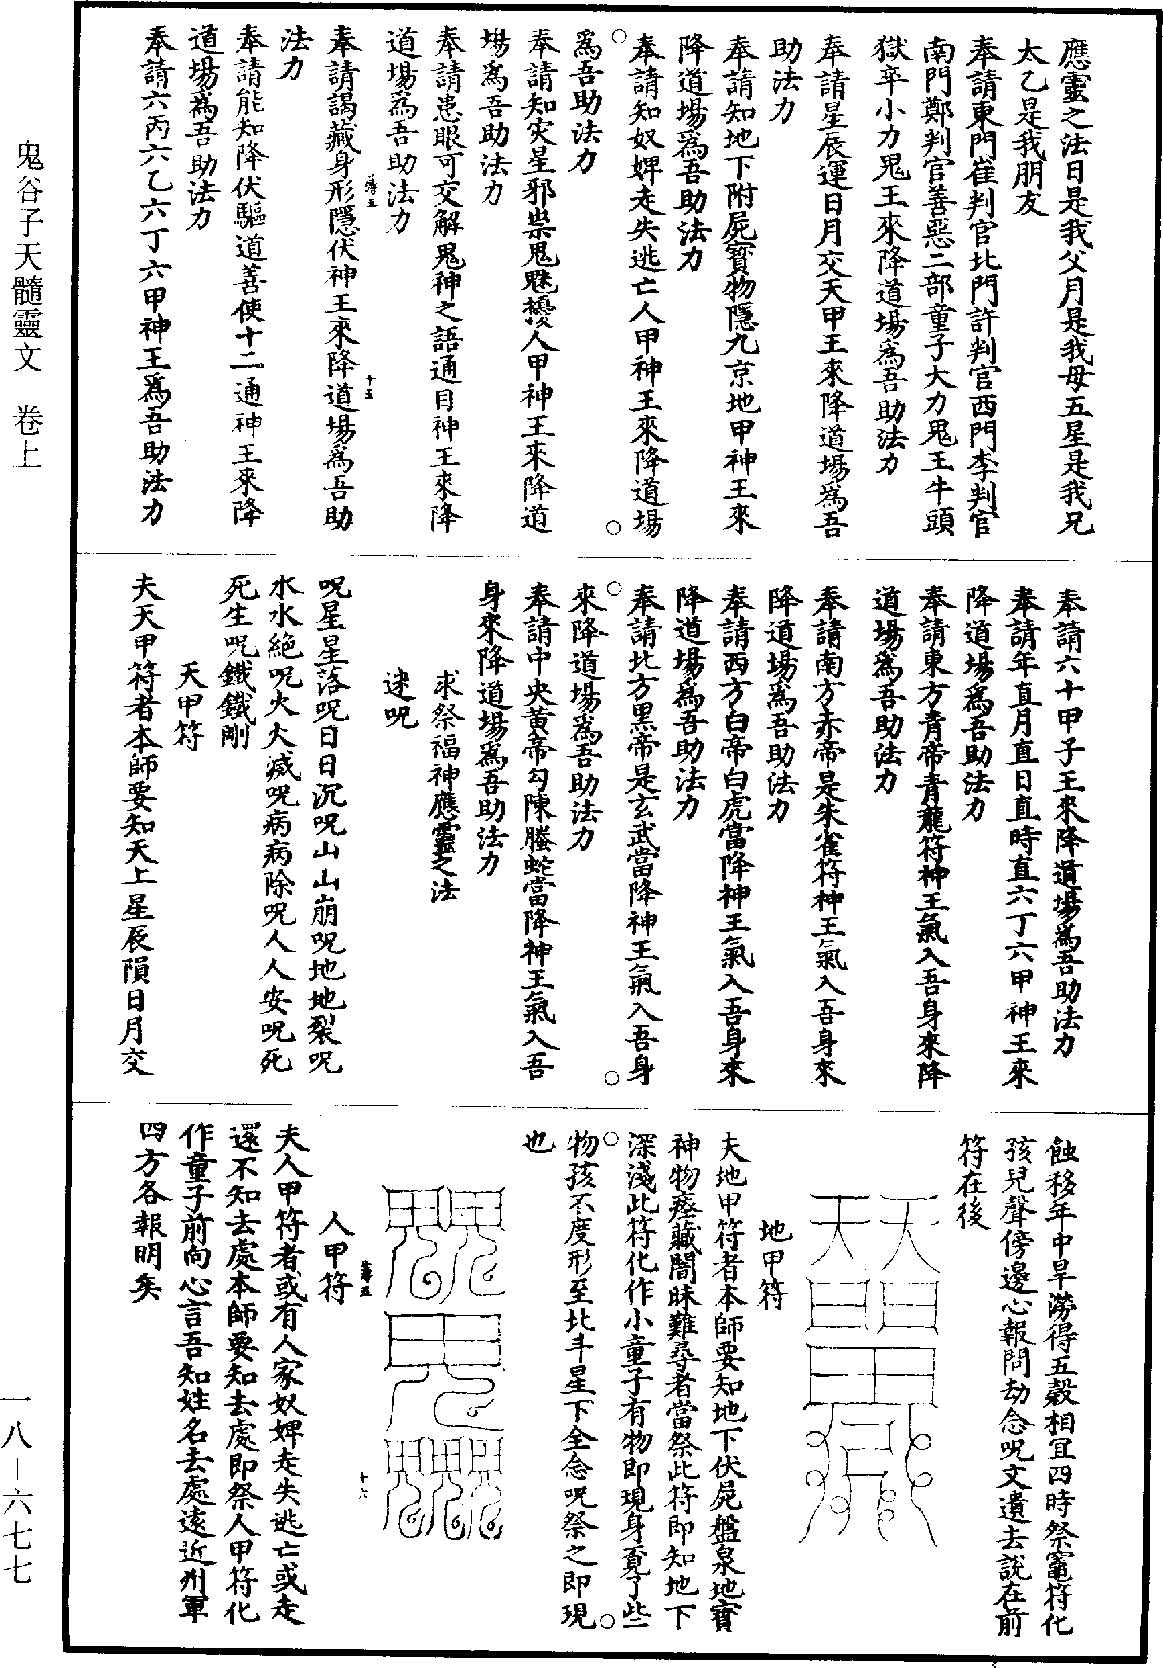 應靈之法日是我父月是我母五星是我兄
太乙是我朋友
奉請東門崔判官北門許判官西門李判官
南門鄭判官善惡二部童子大力鬼王牛頭
獄卒小力鬼王來降道場為吾助法力
奉請星辰運日月交天甲王來降道場為吾
助法力
奉請知地下附屍寶物隱九京地甲神王來
降道場為吾助法力
奉請知奴婢走失逃亡人甲神王來降道場
為吾助法力
奉請知灾星邪祟鬼魅擾人甲神王來降道
場為吾助法力
奉請患眼可交解鬼神之語通目神王來降
道場為吾助法力
奉請謁藏身形隱伏神王來降道場為吾助
法力
奉請能知降伏驅道善使十二通神王來降
道場為吾助法力
奉請六丙六乙六丁六甲神王為吾助法力
奉請六十甲子王來降道場為吾助法力
奉請年直月直日直時直六丁六甲神王來
降道場為吾助法力
奉請東方青帝青龍符神王氣入吾身來降
道場為吾助法力
奉請南方赤帝是朱雀符神王氣入吾身來
降道場為吾助法力
奉請西方白帝白虎當降神王氣入吾身來
降道場為吾助法力
奉請北方黑帝是玄武當降神王氣入吾身
來降道場為吾助法力
奉請中央黃帝勾陳螣蛇當降神王氣入吾
身來降道場為吾助法力
求祭福神應靈之法
迷呪
呪星星落呪日日沉呪山山崩呪地地裂呪
水水絕呪火火滅呪病病除呪人人安呪死
死生呪鐵鐵剛
天甲符
夫天甲符者本師要知天上星辰隕日月交
蝕移年中旱澇得五穀相宜四時祭竈符化
孩兒聲傍邊心報問劫念呪文遺去說在前
符在後
地甲符
夫地甲符者本師要知地下伏屍盤泉地寶
神物瘞藏闇昧難尋者當祭此符即知地下
深淺此符化作小童子有物即現身覓了些
物孩不度形至北斗星下全念呪祭之即現
也
人甲符
夫人甲符者或有人家奴婢走失逃亡或走
還不知去處本師要知去處即祭人甲符化
作童子前向心言吾知姓名去處遠近州軍
四方各報明矣
鬼谷子天髓靈文　卷上
一八－六七七